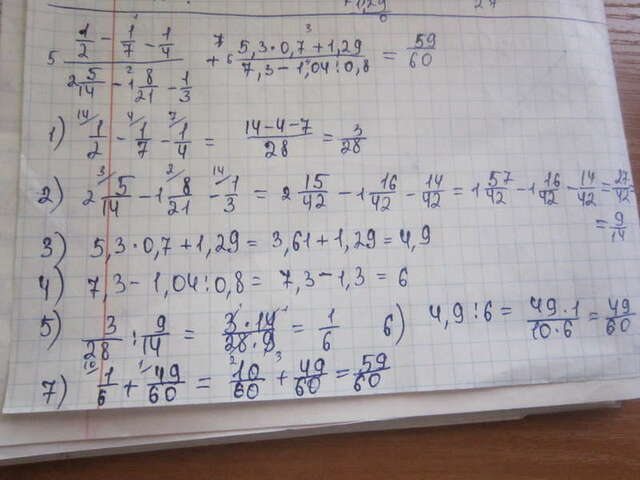 1,29 27
0
5 (1/2 - 1/7 - 1/4)/(2 5/14 - 1 8/21 - 1/3) + (5,3·0,7+1,29)/(7,3-1,04:0,8) = 59/60
1) 1/2 - 1/7 - 1/4 = (14-4-7)/28 = 3/28
2) 2 5/14 - 1 8/21 - 1/3 = 2 15/42 - 1 16/42 - 14/42 = 1 57/42 - 1 16/42 - 14/42 = 27/42
= 9/14
3) 5,3·0,7+1,29 = 3,61+1,29 = 4,9
4) 7,3-1,04:0,8 = 7,3-1,3 = 6
5) 3/28 : 9/14 = (3·14)/(28·9) = 1/6 6) 4,9:6 = (49·1)/(10·6) = 49/60
7) 1/6 + 49/60 = 10/60 + 49/60 = 59/60